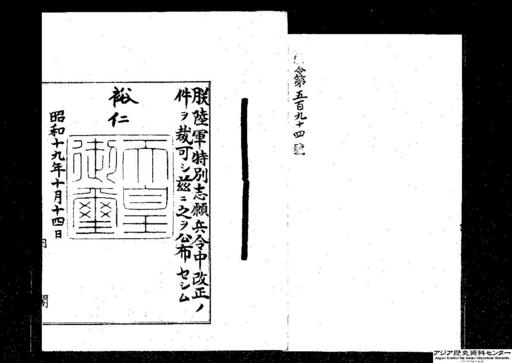 令第五百九十四號
朕陸軍特別志願兵令中改正ノ
件ヲ裁可シ茲ニ之ヲ公布セシム
裕仁
天皇御璽
昭和十九年十月十四日
閣
アジア歴史資料センター
Japan Center for Asian Historical Records